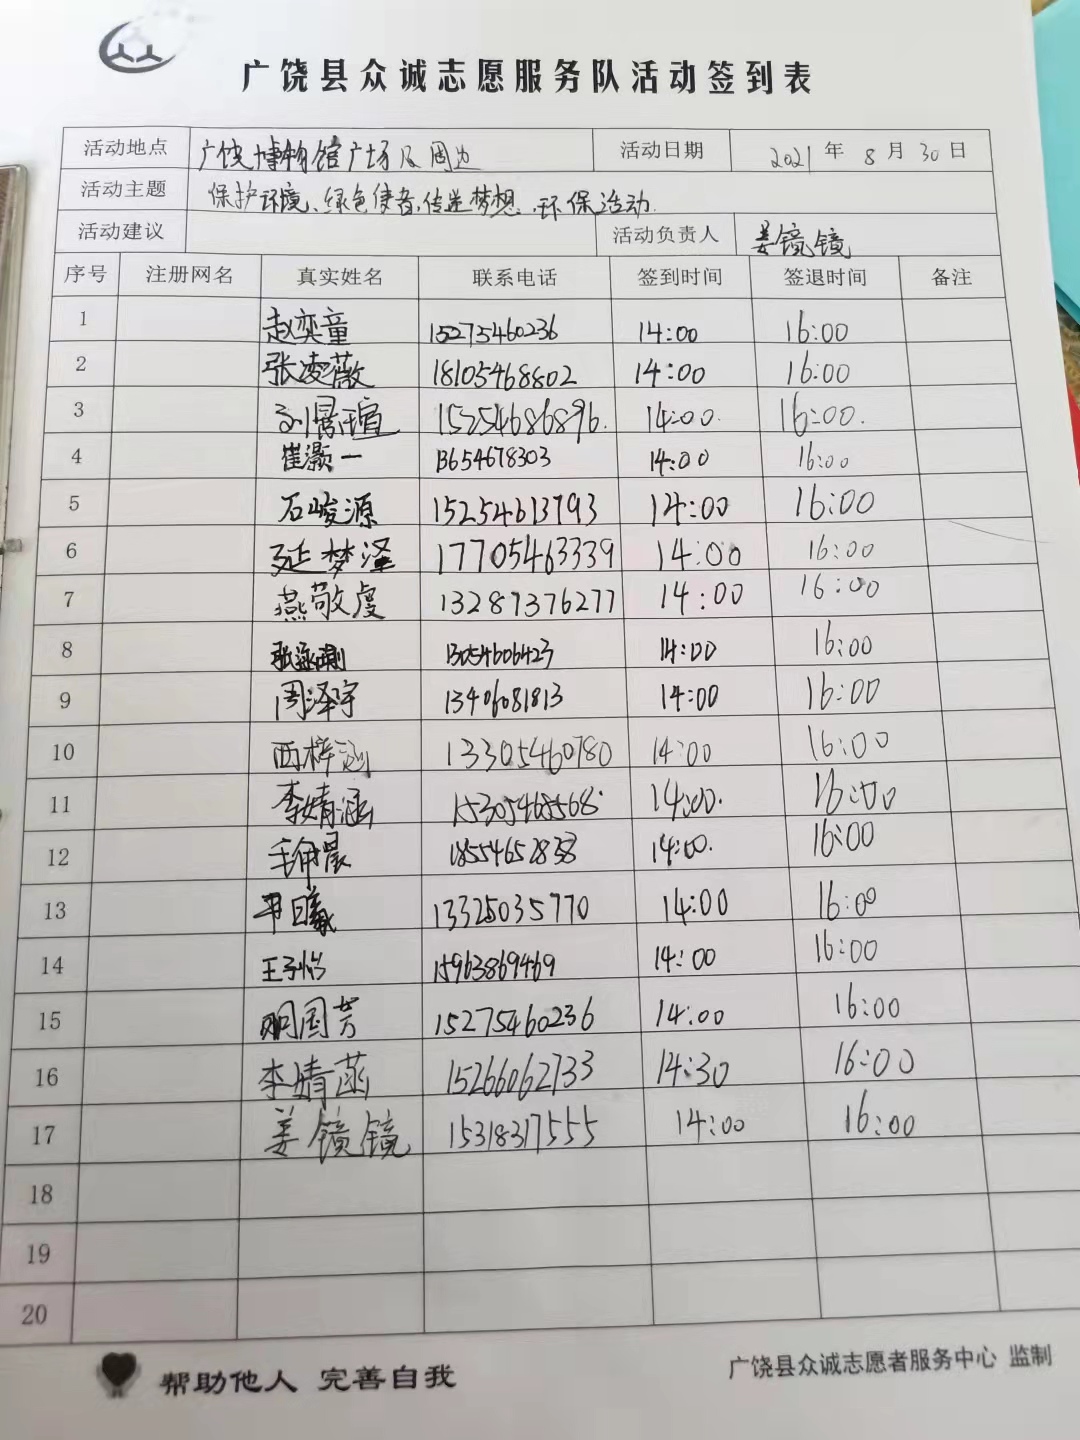 广饶县众诚志愿服务队活动签到表
活动地点 广饶博物馆广场及周边 活动日期 2021 年 8 月 30 日
活动主题 保护环境、绿色使者,传递梦想,环保活动.
活动建议 活动负责人 姜镜镜
序号 注册网名 真实姓名 联系电话 签到时间 签退时间 备注
1 赵奕童 15275460236 14:00 16:00
2 张凌薇 18105468802 14:00 16:00
3 刘景瑄 15254686896. 14:00. 16:00.
4 崔灏一 13654678303 14:00 16:00
5 石峻源 15254613793 14:00 16:00
6 延梦泽 17705463339 14:00 16:00
7 燕敬虔 13287376277 14:00 16:00
8 13054606423 14:00 16:00
9 周泽宇 13406081813 14:00 16:00
10 西梓涵 13305460780 14:00 16:00
11 李婧涵 15305465568 14:00. 16:00
12 18554652838 14:00. 16:00
13 13325035770 14:00 16:00
14 王子怡 15963869469 14:00 16:00
15 国芳 15275460236 14:00 16:00
16 李婧菡 15266062733 14:30 16:00
17 姜镜镜 15318317555 14:00 16:00
18
19
20
帮助他人 完善自我
广饶县众诚志愿者服务中心 监制